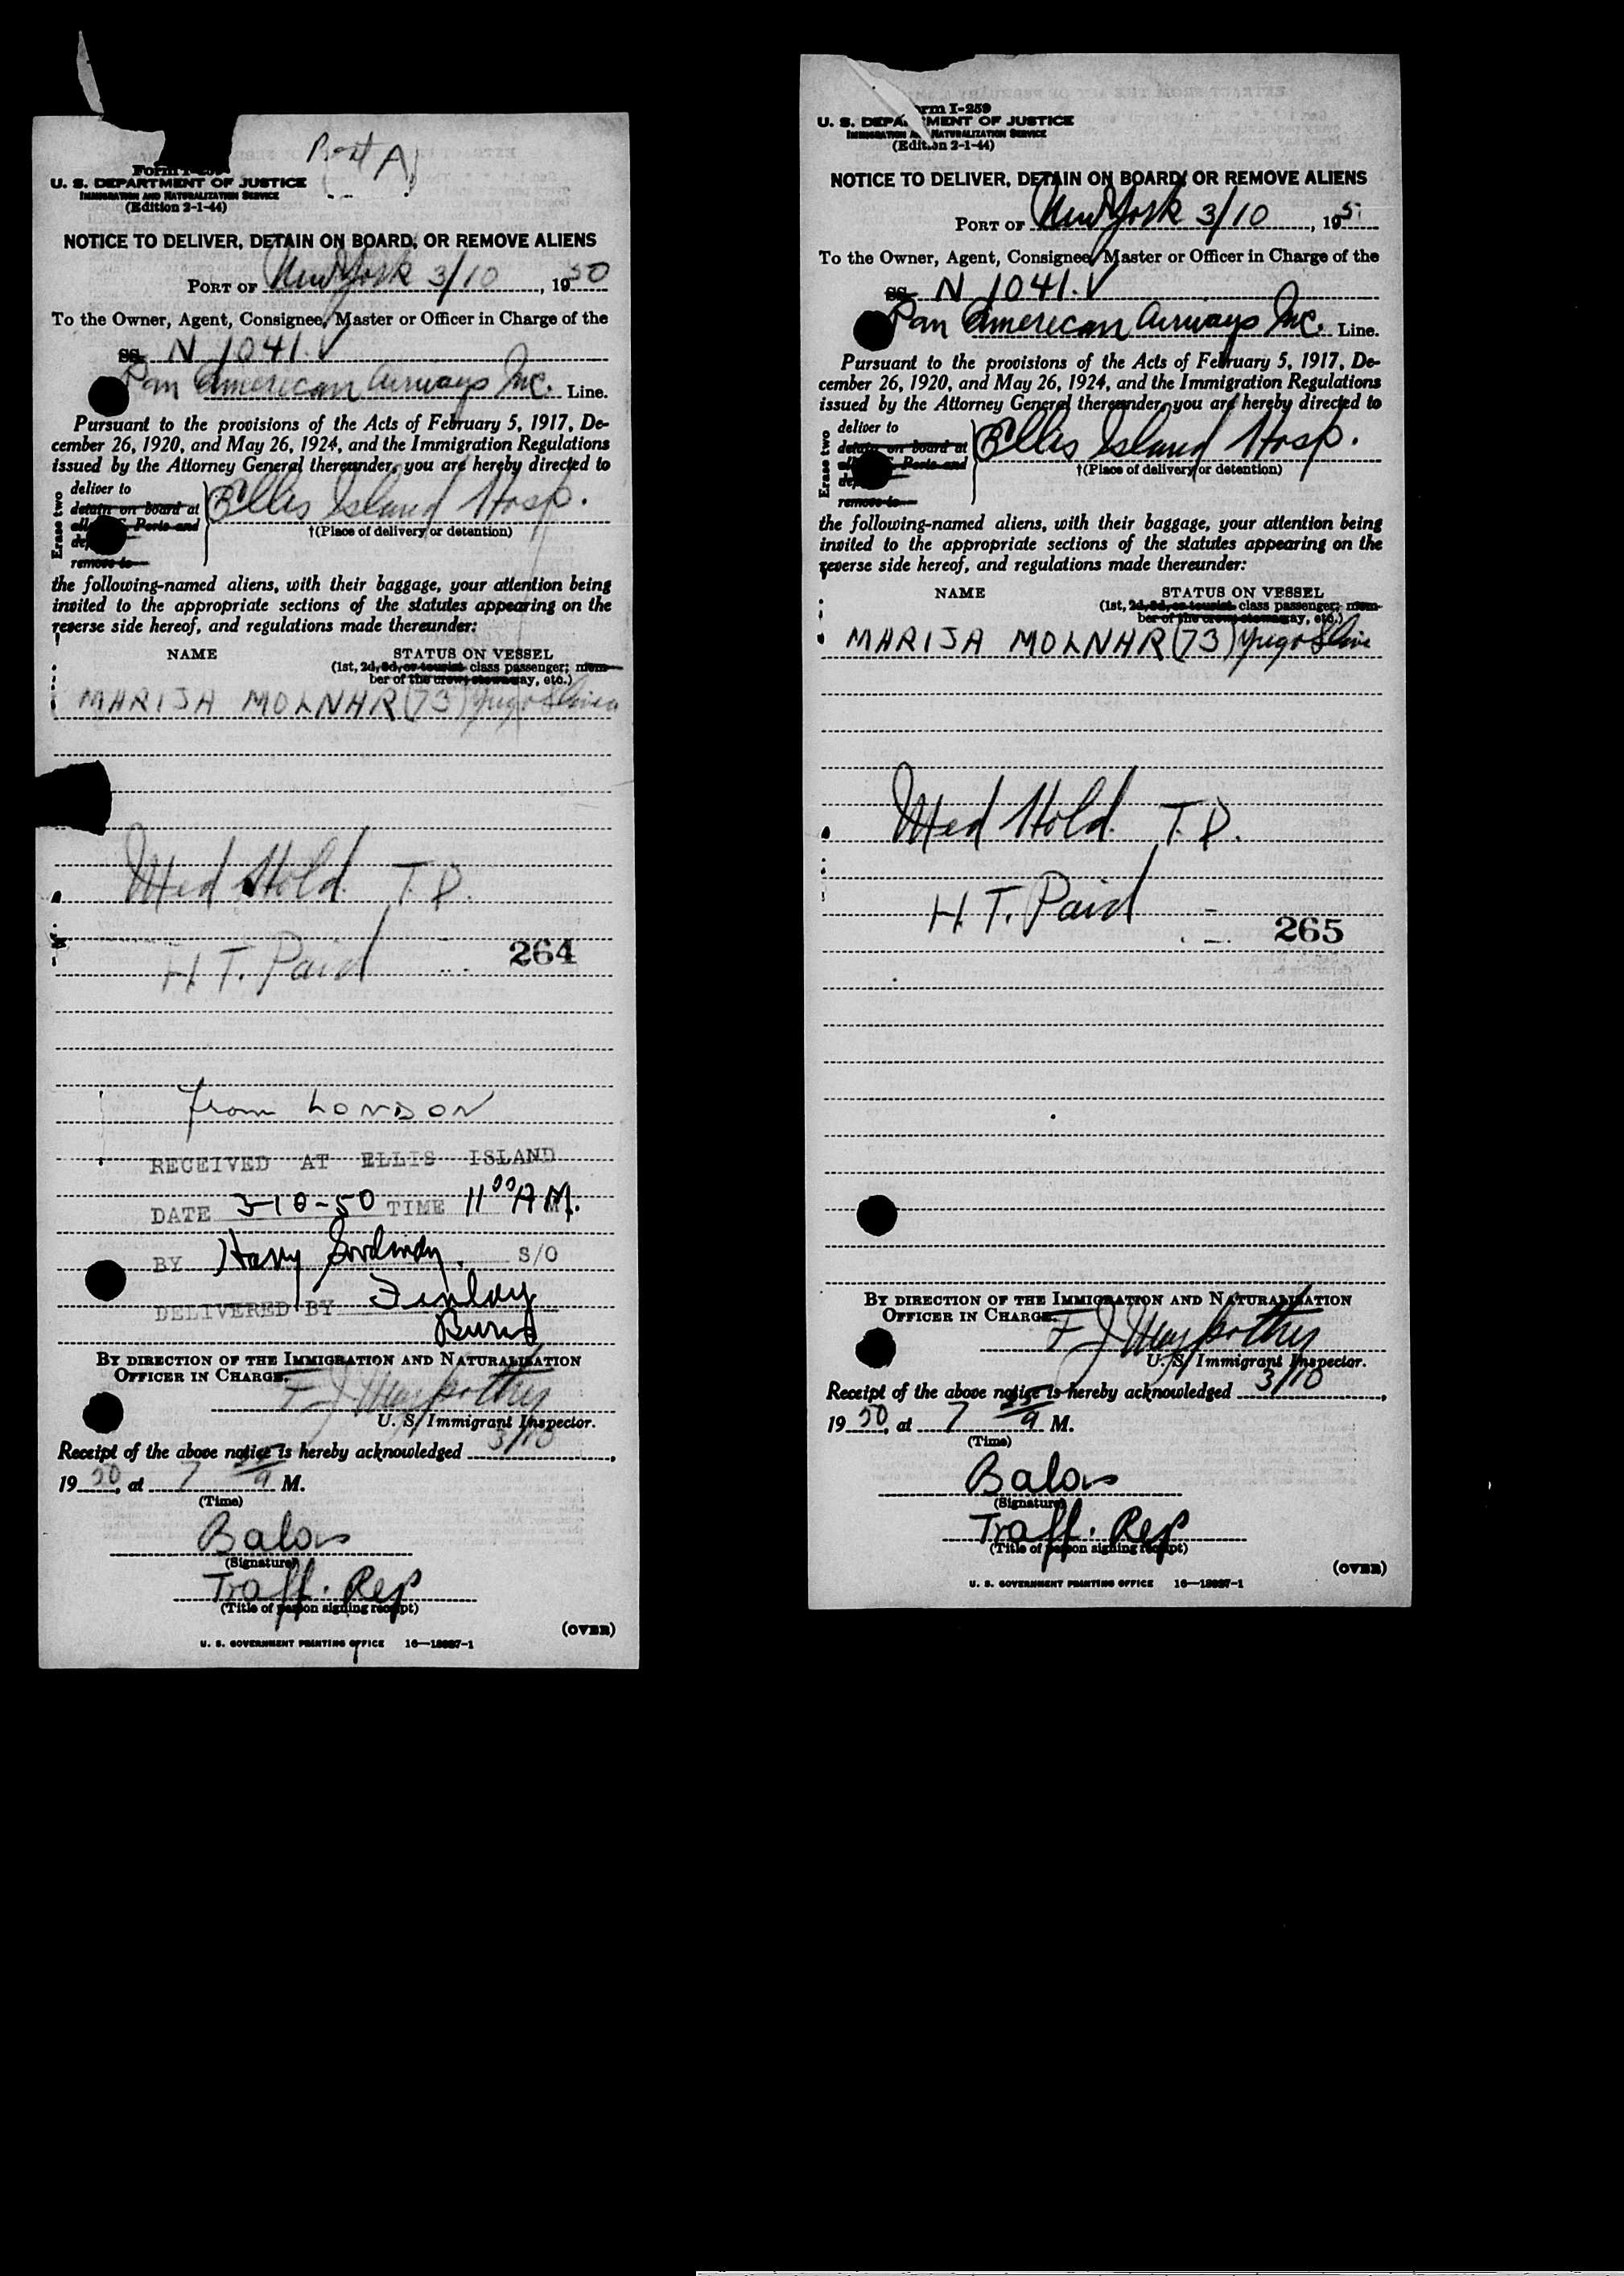 Port A
Form I-259
U. S. DEPARTMENT OF JUSTICE
IMMIGRATION AND NATURALIZATION SERVICE
(Edition 2-1-44)
NOTICE TO DELIVER, DETAIN ON BOARD, OR REMOVE ALIENS
PORT OF New York 3/10, 1950
To the Owner, Agent, Consignee, Master or Officer in Charge of the
SS. N 1041.V
Pan American Airways Inc. Line.
Pursuant to the provisions of the Acts of February 5, 1917, De-
cember 26, 1920, and May 26, 1924, and the Immigration Regulations
issued by the Attorney General thereunder, you are hereby directed to
Erase two
deliver to
detain on board at
all Ports and
remove to
Ellis Island Hosp.
†(Place of delivery or detention)
the following-named aliens, with their baggage, your attention being
invited to the appropriate sections of the statutes appearing on the
reverse side hereof, and regulations made thereunder:
NAME STATUS ON VESSEL
(1st, 2d, 3d, or tourist class passenger; mem-
ber of the crew, stowaway, etc.)
MARIJA MOLNAR (73) Yugoslavia
Med Hold. T.D.
H.T. Paid
264
from LONDON
RECEIVED AT ELLIS ISLAND
DATE 3-10-50 TIME 11 00 A M.
BY Harry S/O
DELIVERED BY Finlay
Burns
BY DIRECTION OF THE IMMIGRATION AND NATURALIZATION
OFFICER IN CHARGE.
F J
U. S. Immigrant Inspector.
Receipt of the above notice is hereby acknowledged 3/10,
1950, at 7 M.
(Time)
Balos
(Signature)
Traff. Rep
(Title of person signing receipt)
(OVER)
U. S. GOVERNMENT PRINTING OFFICE 16—18027-1
Form I-259
U. S. DEPARTMENT OF JUSTICE
IMMIGRATION AND NATURALIZATION SERVICE
(Edition 2-1-44)
NOTICE TO DELIVER, DETAIN ON BOARD, OR REMOVE ALIENS
PORT OF New York 3/10, 195
To the Owner, Agent, Consignee, Master or Officer in Charge of the
SS. N 1041.V
Pan American Airways Inc. Line.
Pursuant to the provisions of the Acts of February 5, 1917, De-
cember 26, 1920, and May 26, 1924, and the Immigration Regulations
issued by the Attorney General thereunder, you are hereby directed to
Erase two
deliver to
detain on board at
Ports and
remove to
Ellis Island Hosp.
†(Place of delivery or detention)
the following-named aliens, with their baggage, your attention being
invited to the appropriate sections of the statutes appearing on the
reverse side hereof, and regulations made thereunder:
NAME STATUS ON VESSEL
(1st, 2d, 3d, or tourist class passenger; mem-
ber of the crew, stowaway, etc.)
MARIJA MOLNAR (73)
Med Hold. T.D.
H.T. Paid
265
BY DIRECTION OF THE IMMIGRATION AND NATURALIZATION
OFFICER IN CHARGE.
F J
U. S. Immigrant Inspector.
Receipt of the above notice is hereby acknowledged 3/10,
1950, at 7 M.
(Time)
Balos
(Signature)
Traff. Rep
(Title of person signing receipt)
(OVER)
U. S. GOVERNMENT PRINTING OFFICE 16—18027-1